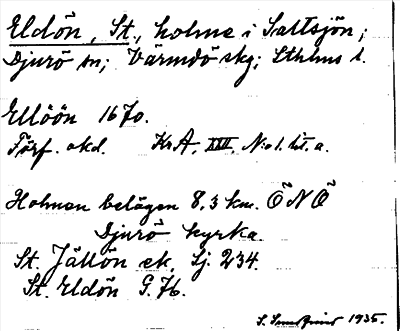 Eldön, St., holme i Saltsjön;
Djurö sn; Värmdö skg; Sthlms l.
Ellöön 1670.
Förf. okd. KrA, XXII, N:o 1. lit. a.
Holmen belägen 8,3 km. ÖNÖ
Djurö kyrka.
St. Jällön ek. Sj. 234.
St. Eldön G.76.
S. 1935.